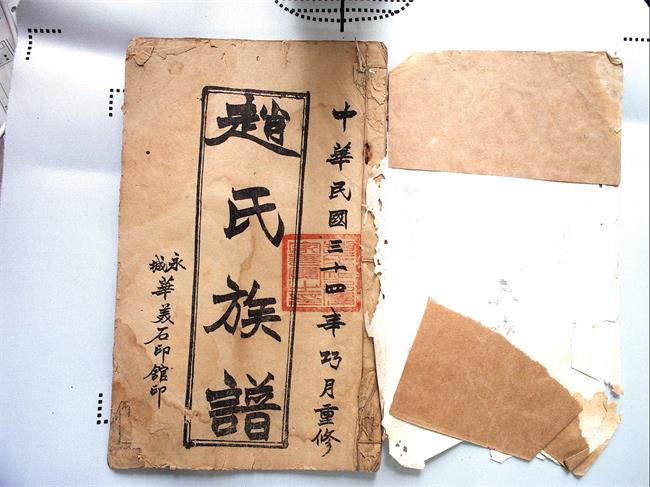 中華民國三十四年巧月重修
趙氏族譜
永城華美石印館印